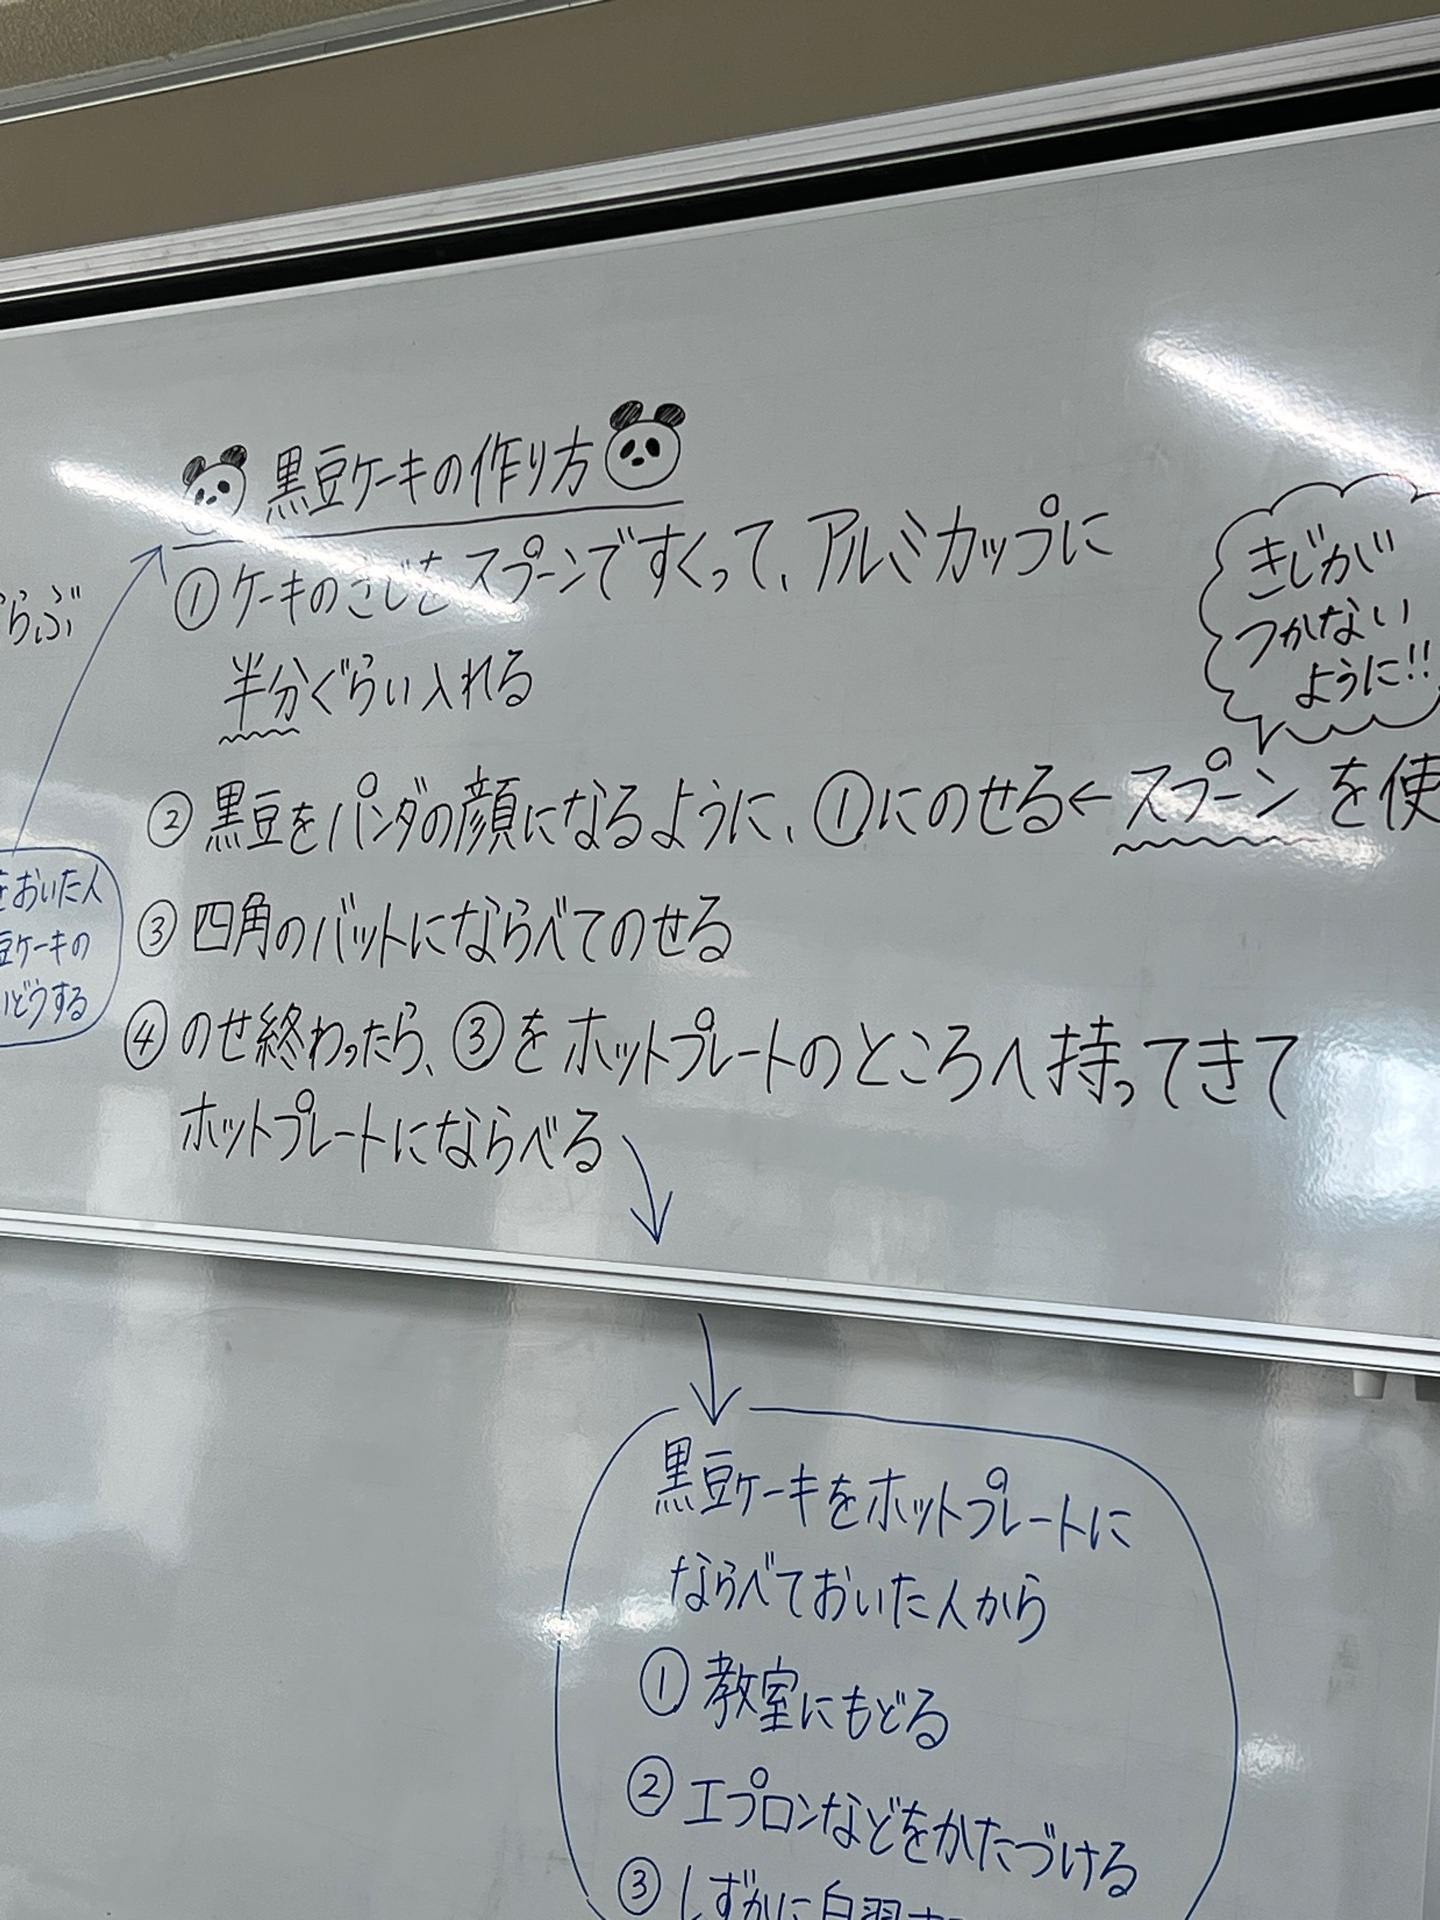 黒豆ケーキの作り方
①ケーキのきじをスプーンですくって、アルミカップに
半分ぐらい入れる
②黒豆をパンダの顔になるように、①にのせる←スプーンを使
きじが
つかない
ように!!
③四角のバットにならべてのせる
④のせ終わったら、③をホットプレートのところへ持ってきて
ホットプレートにならべる
らぶ
をおいた人
豆ケーキの
いどうする
黒豆ケーキをホットプレートに
ならべておいた人から
①教室にもどる
②エプロンなどをかたづける
③しずかに自習